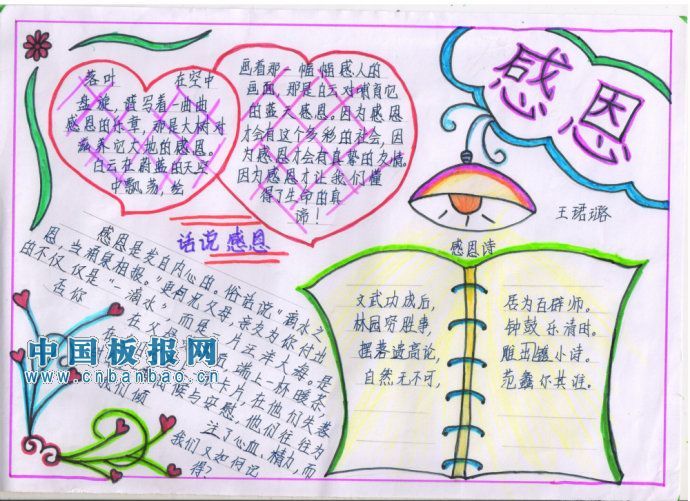 感恩
王珺璐
落叶 在空中
盘旋，谱写着一曲曲
感恩的乐章，那是大树对
滋养它大地的感恩。
白云在蔚蓝的天空
中飘荡，绘
画着那一幅幅感人的
画面，那是白云对哺育它
的蓝天感恩。因为感恩
才会有这个多彩的社会，因
为感恩才会有真挚的友情。
因为感恩才让我们懂
得了生命的真
谛！
话说感恩
感恩是发自内心的。俗话说“滴水之
恩，当涌泉相报。”更何况父母，亲友为你付出
的不仅仅是“一滴水”，而是一片汪洋大海。是
否你
在父母
后端上一杯暖茶
卡片，在他们失落
问候与安慰，他们往往为
我们倾
注了心血、精力，而
我们又如何记
得？
感恩诗
文武功成后，
居为百辟师。
林园穷胜事，
钟鼓乐清时。
摆落遗高论，
雕出小诗。
自然无不可，
范蠡尔其谁。
中国板报网
www.cnbanbao.cn